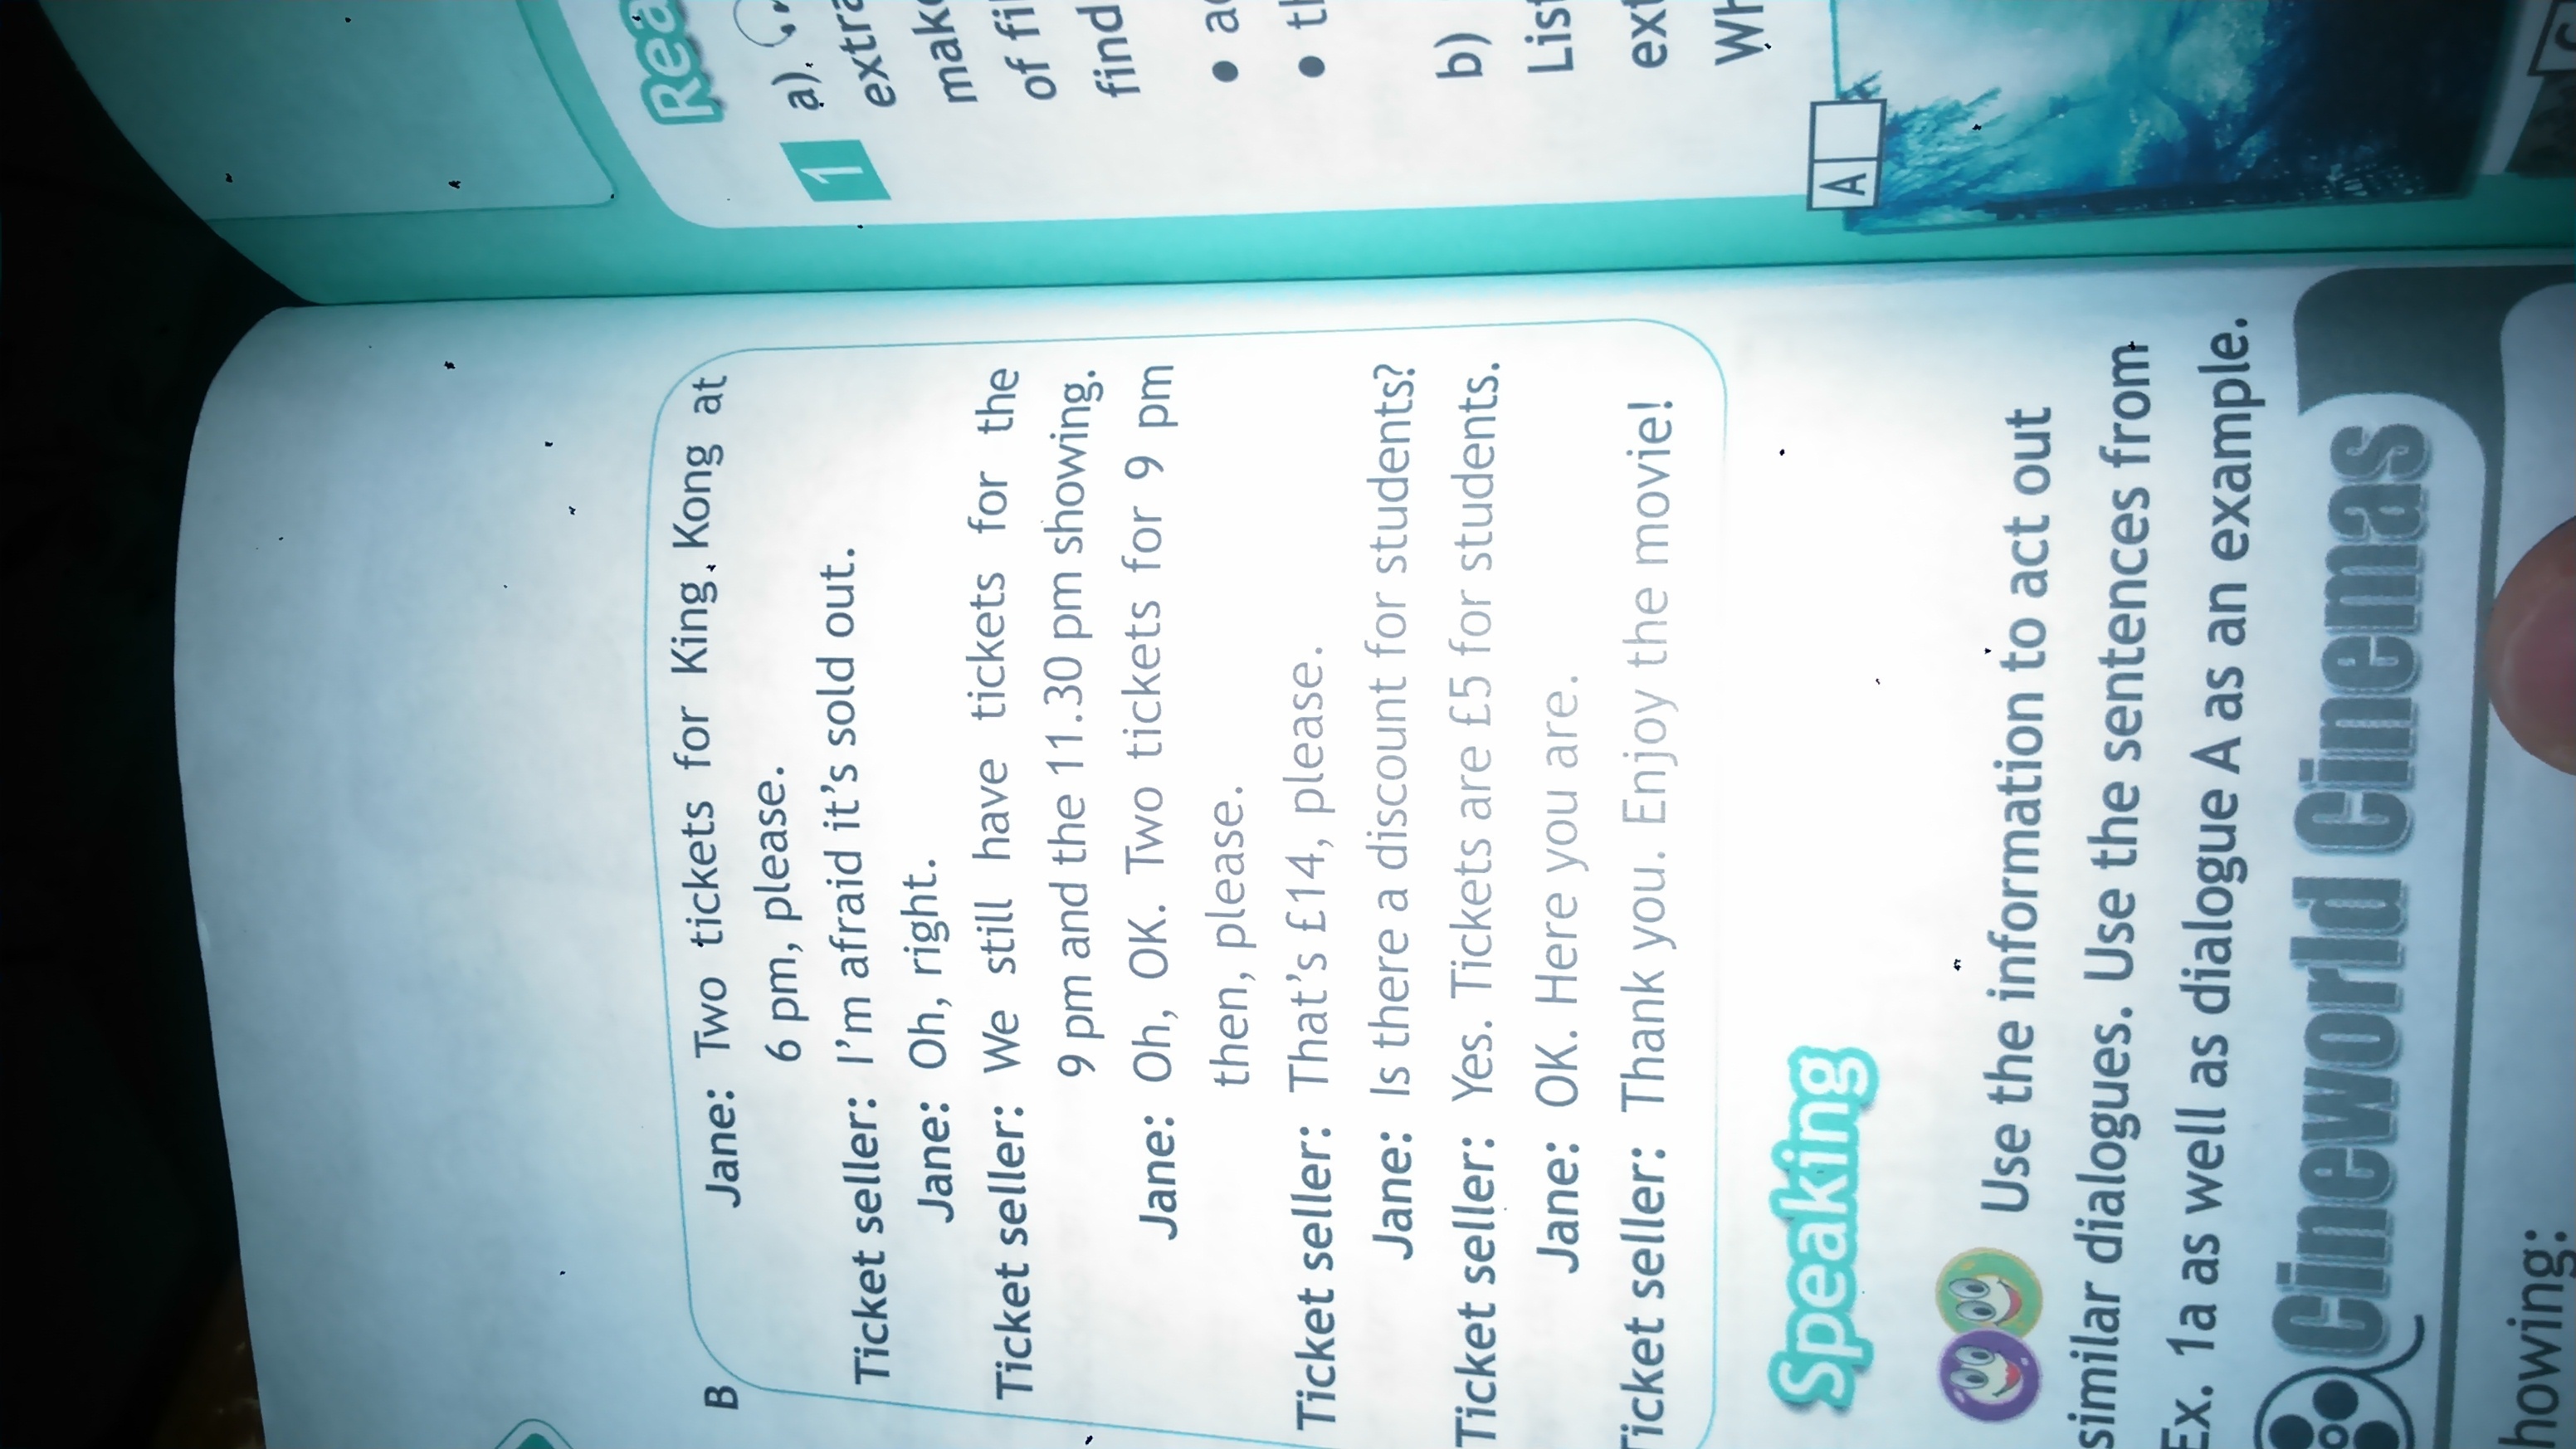 B Jane: Two tickets for King Kong at
6 pm, please.
Ticket seller: I'm afraid it's sold out.
Jane: Oh, right.
Ticket seller: We still have tickets for the
9 pm and the 11.30 pm showing.
Jane: Oh, OK. Two tickets for 9 pm
then, please.
Ticket seller: That's £14, please.
Jane: Is there a discount for students?
Ticket seller: Yes. Tickets are £5 for students.
Jane: OK. Here you are.
Ticket seller: Thank you. Enjoy the movie!
Speaking
Use the information to act out
similar dialogues. Use the sentences from
Ex. 1a as well as dialogue A as an example.
Cineworld Cinemas
howing:
Rea
1 a)
extra
make
of fil
find
• a
• t
b)
List
ext
Wh
A
C